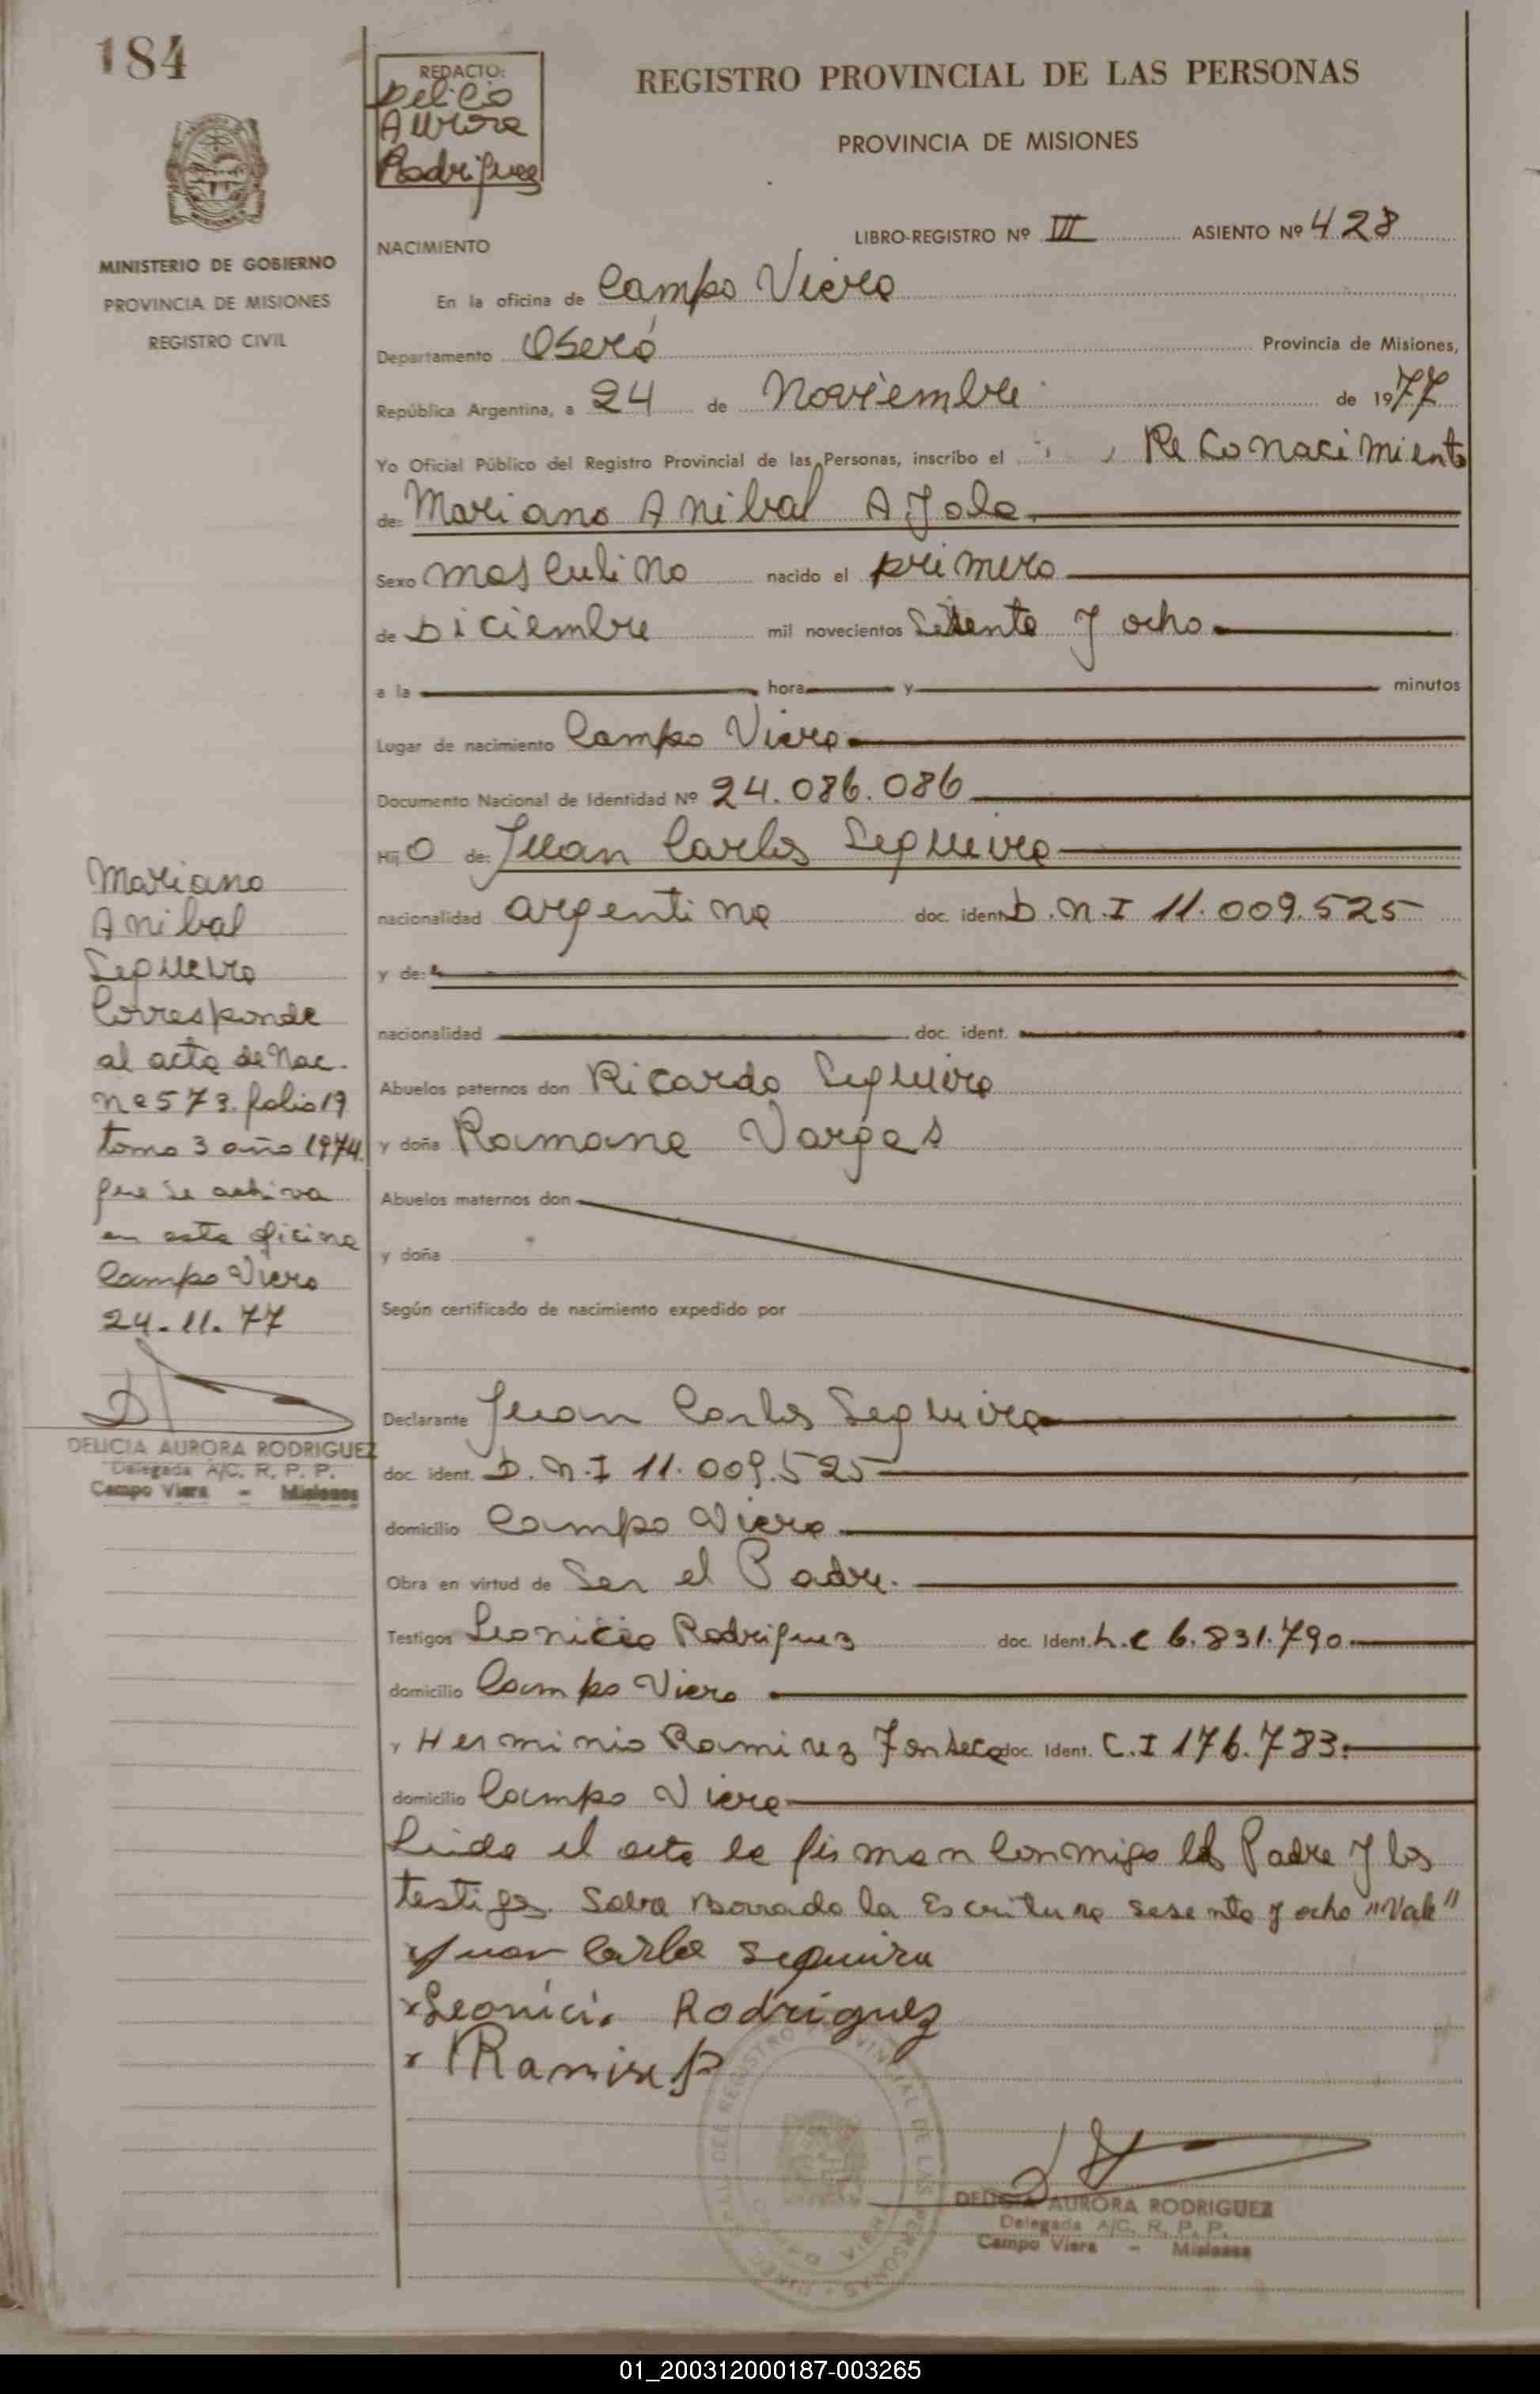 184
REDACTO:
Delicia
Aurora
Rodriguez
REGISTRO PROVINCIAL DE LAS PERSONAS
PROVINCIA DE MISIONES
MINISTERIO DE GOBIERNO
PROVINCIA DE MISIONES
REGISTRO CIVIL
NACIMIENTO
LIBRO-REGISTRO Nº III ASIENTO Nº 428
En la oficina de Campo Viera
Departamento Oberá Provincia de Misiones,
República Argentina, a 24 de Noviembre de 1977
Yo Oficial Público del Registro Provincial de las Personas, inscribo el Reconacimiento
de: Mariano Anibal Ayala
Sexo masculino nacido el primero
de Diciembre mil novecientos setenta y ocho
a la hora y minutos
Lugar de nacimiento Campo Viera
Documento Nacional de Identidad Nº 24.086.086
Hijo de: Juan Carlos Sequeira
nacionalidad argentina doc. ident. D.N.I 11.009.525
y de:
nacionalidad doc. ident.
Abuelos paternos don Ricardo Sequeira
y doña Ramona Vargas
Abuelos maternos don
y doña
Según certificado de nacimiento expedido por
Declarante Juan Carlos Sequeira
doc. ident. D.N.I 11.009.525
domicilio Campo Viera
Obra en virtud de Ser el Padre.
Testigos Leonicio Rodriguez doc. Ident. L.E 6.831.790
domicilio Campo Viera
y Herminio Ramirez Fonseca doc. Ident. C.I 176.783.
domicilio Campo Viera
Leida el acta la firman conmigo el Padre y los
testigos. Salva Borrado la Escritura sesenta y ocho "Vale"
Juan Carlos Sequeira
x Leonicio Rodriguez
x Ramirez
Mariano
Anibal
Sequeira
Corresponde
al acta de Nac.
nº 573. folio 19
tomo 3 año 1974.
que se archiva
en esta oficina
Campo Viera
24.11.77
DELICIA AURORA RODRIGUEZ
Delegada A/C. R. P. P.
Campo Viera - Misiones
DELICIA AURORA RODRIGUEZ
Delegada A/C. R. P. P.
Campo Viera - Misiones
01_200312000187-003265